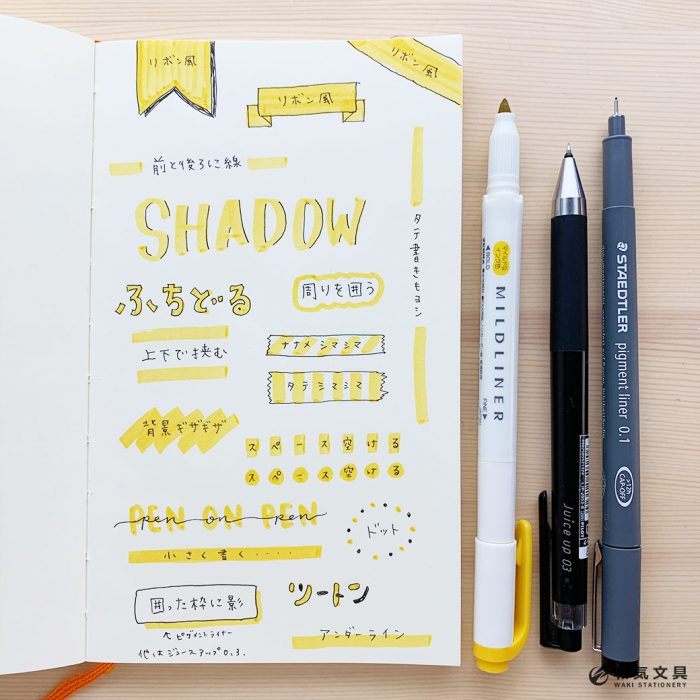 リボン風
リボン風
リボン風
前と後ろに線
SHADOW
タテ書きもヨシ
ふちどる
周りを囲う
上下で挟む
ナナメ シマシマ
タテ シマシマ
背景ギザギザ
スペース空ける
スペース空ける
PEN ON PEN
pen on pen
ドット
小さく書く・・・・
囲った枠に影
ツートン
↖ピグメントライナー
他はジュースアップ0.3.
アンダーライン
マイルドなインク色
◀BOLD
MILDLINER
FINE▶
Juice up 03
STAEDTLER
pigment liner 0.1
>12h
CAP-OFF
和気文具
WAKI STATIONERY